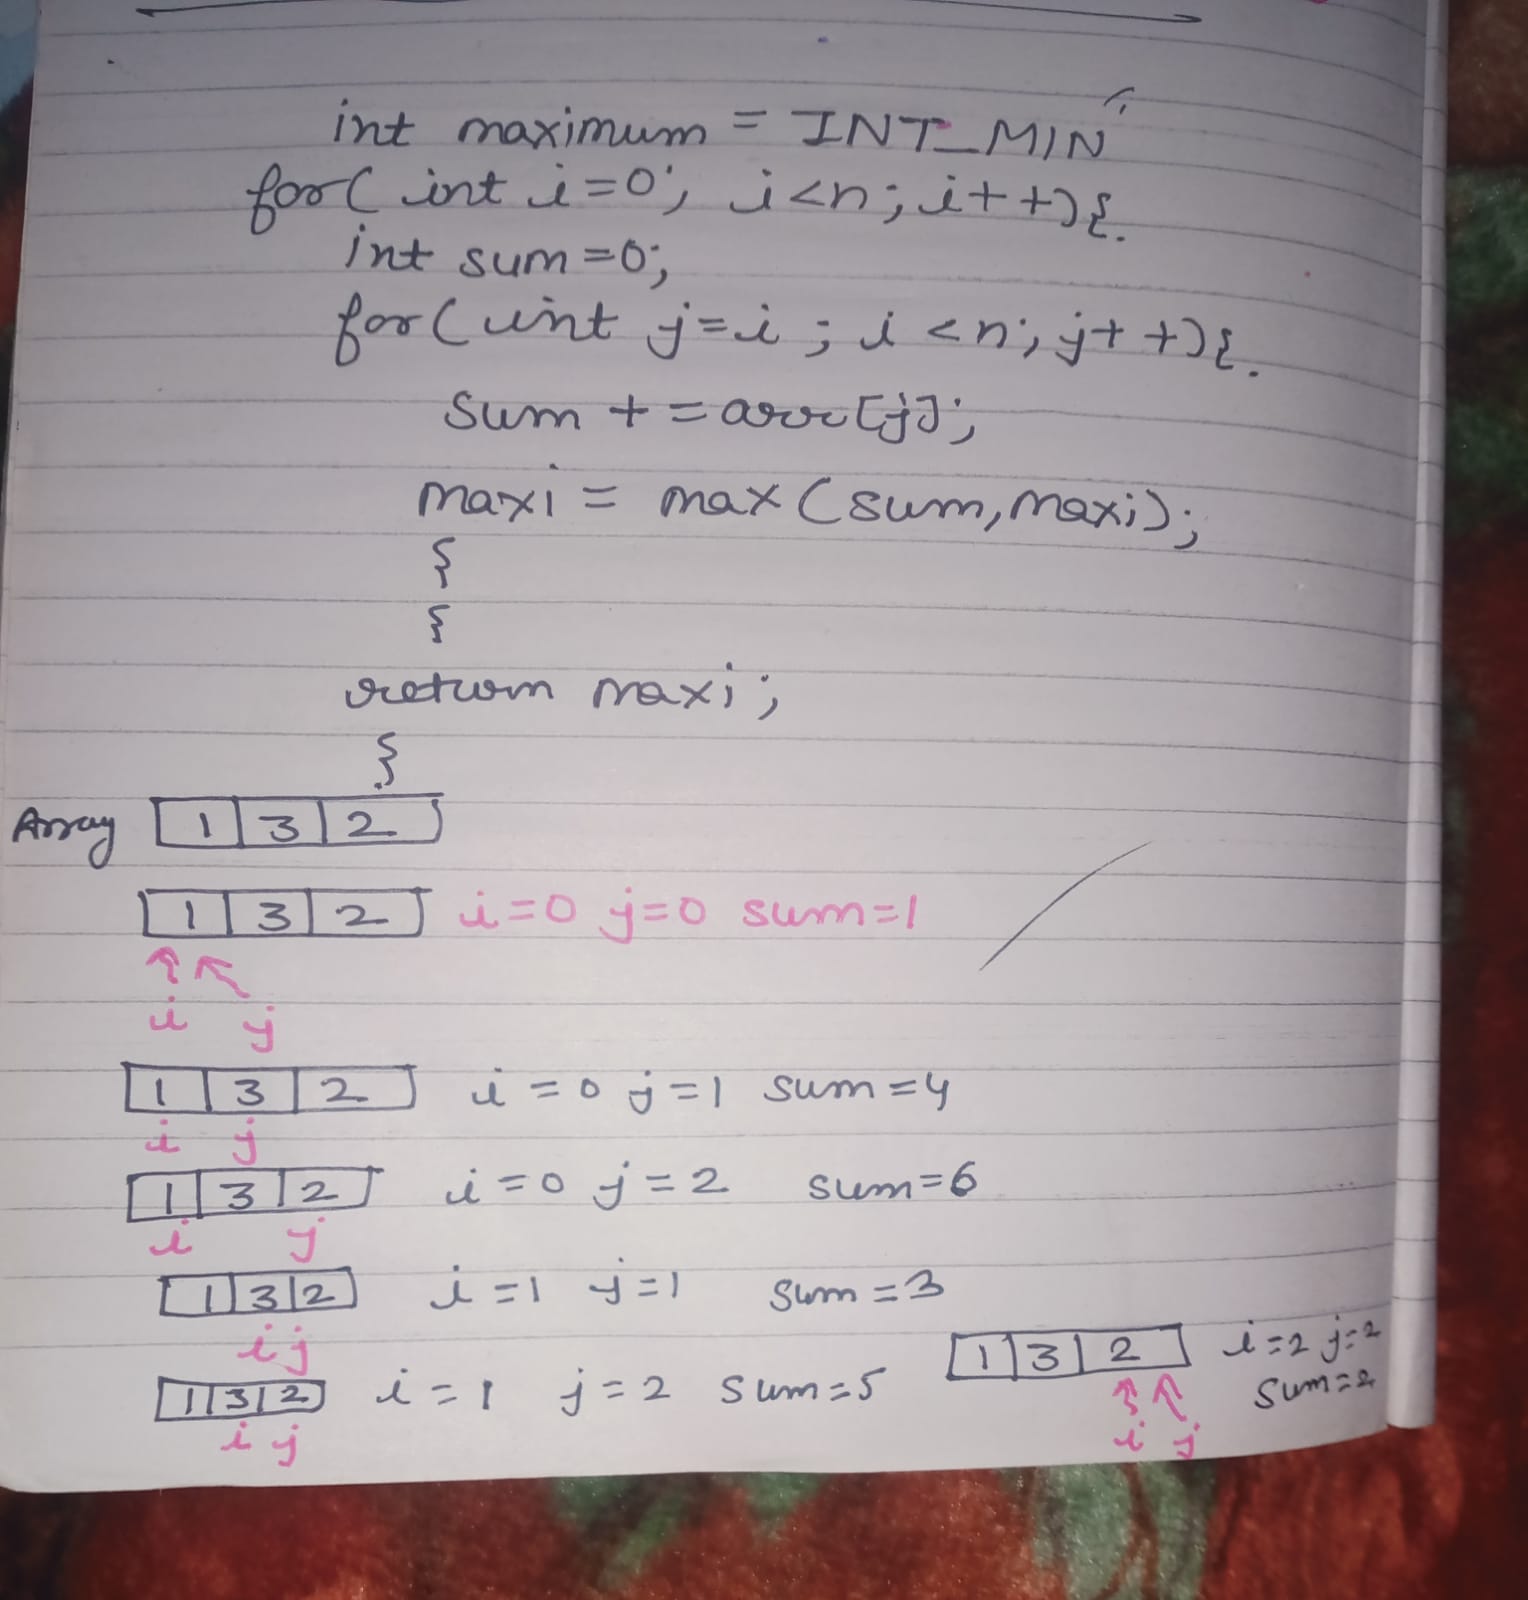 int maximum = INT_MIN
for( int i=0; i<n; i++){
int sum=0;
for( int j=i ; i <n; j++){
sum + = arr[j];
maxi = max (sum, maxi);
}
}
return maxi;
}
Array 1 3 2
1 3 2 i=0 j=0 sum=1
i j
1 3 2 i=0 j=1 sum=4
i j
1 3 2 i=0 j=2 sum=6
i j
1 3 2 i=1 j=1 sum=3
i j
1 3 2 i=1 j=2 sum=5
i j
1 3 2 i=2 j=2
sum=2
i j